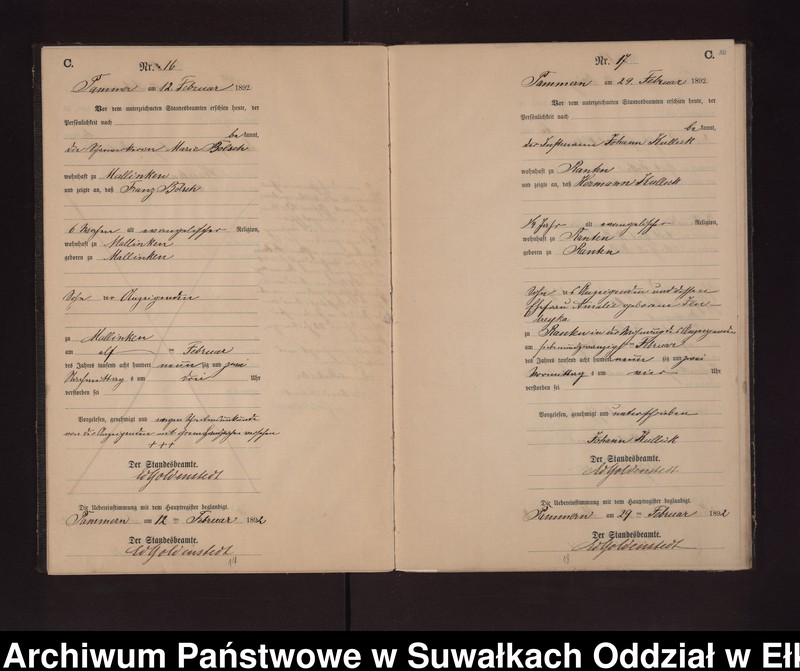 C.
Nr. 16
Tammen am 12 Februar 1892
Vor dem unterzeichneten Standesbeamten erschien heute, der
Persönlichkeit nach
bekannt,
die Marie Bolsch
wohnhaft zu Mallinken
und zeigte an, daß Franz Bolsch
6 Wochen alt evangelischer Religion,
wohnhaft zu Mallinken
geboren zu Mallinken
Sohn der Anzeigenden
zu Mallinken
am elf ten Februar
des Jahres tausend acht hundert neun zig und zwei
Nachmittags um Uhr
verstorben sei
Vorgelesen, genehmigt und wegen Schreibensunkunde
von der Anzeigenden mit Handzeichen versehen
+ + +
Der Standesbeamte.
Goldenstedt
Die Uebereinstimmung mit dem Hauptregister beglaubigt.
Tammen am 12 ten Februar 1892
Der Standesbeamte.
Goldenstedt
C.
Nr. 17
Tammen am 29. Februar 1892.
Vor dem unterzeichneten Standesbeamten erschien heute, der
Persönlichkeit nach
bekannt,
der Losmann Johann Kulleck
wohnhaft zu Ranten
und zeigte an, daß Hermann Kulleck
1/2 Jahr alt evangelischer Religion,
wohnhaft zu Ranten
geboren zu Ranten
Sohn des Anzeigenden und dessen
Ehefrau Amalie geborene
zu Ranten in der Wohnung des Anzeigenden
am siebenundzwanzig ten Februar
des Jahres tausend acht hundert neun zig und zwei
Vormittags um vier Uhr
verstorben sei
Vorgelesen, genehmigt und unterschrieben
Johann Kulleck
Der Standesbeamte.
Goldenstedt
Die Uebereinstimmung mit dem Hauptregister beglaubigt.
Tammen am 29 ten Februar 1892
Der Standesbeamte.
Goldenstedt
Archiwum Państwowe w Suwałkach Oddział w Eł